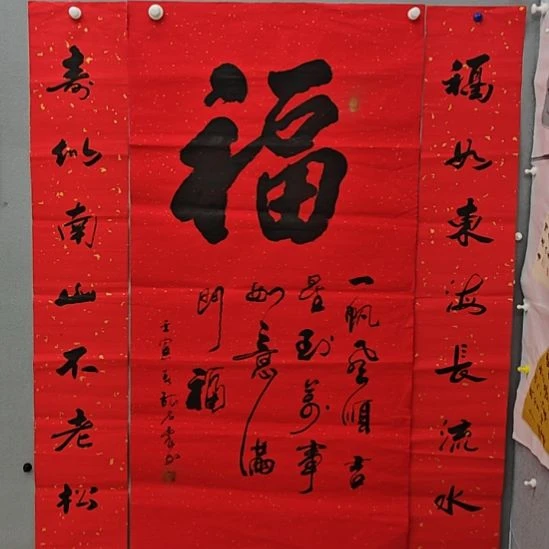 福如東海長流水
福
一帆風順吉
星到萬事
如意滿
門福
壬寅春
壽似南山不老松